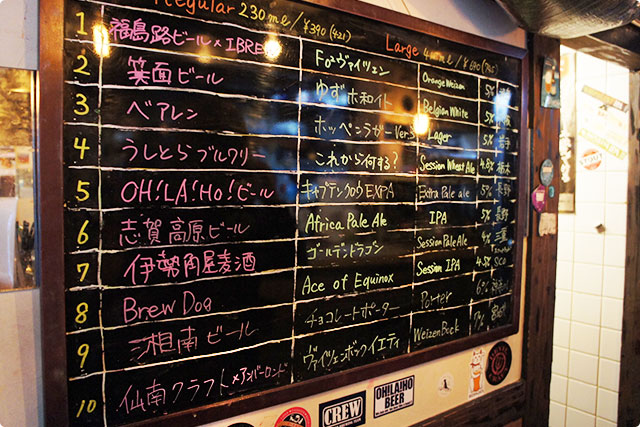 Regular 230ml/¥390(421) Large
1 福島路ビール×IBRE Fo²ヴァイツェン Orange Weizen 5%
2 箕面ビール ゆずホ和イト Belgian White 5%
3 ベアレン ホッペンラガー Ver3 Lager 5% 岩手
4 うしとらブルワリー これから何する? Session Wheat Ale 4.8% 栃木
5 OH!LA!HO!ビール キャプテンクロウEXPA Extra Pale ale 5% 長野
6 志賀高原ビール Africa Pale Ale IPA 5% 長野
7 伊勢角屋麦酒 ゴールデンドラゴン Session Pale Ale 4% 三重
8 Brew Dog Ace of Equinox Session IPA 4.5%
9 湘南ビール チョコレートポーター Porter 6%
10 仙南クラフト×アンバーロンド ヴァイツェンボックイエティ Weizen Bock 7%
CREW
OH!LA!HO
BEER